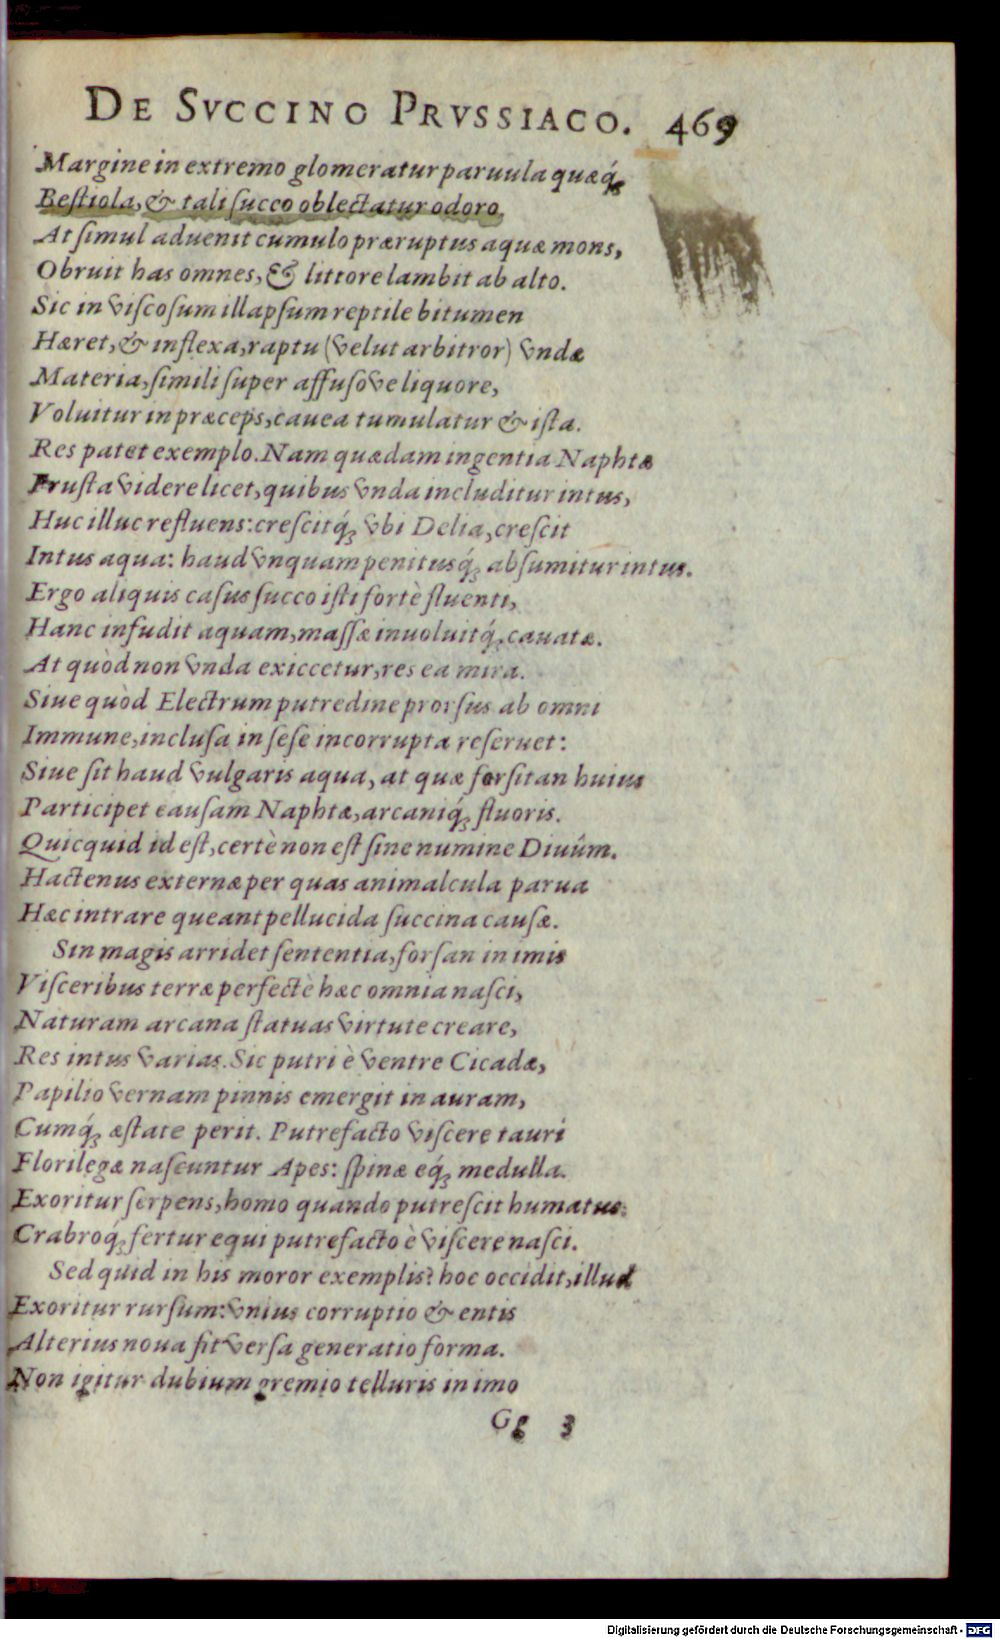 DE SVCCINO PRVSSIACO. 469
Margine in extremo glomeratur paruula quæq́;
Bestiola, & tali succo oblectatur odoro.
At simul aduenit cumulo præruptus aquæ mons,
Obruit has omnes, & littore lambit ab alto.
Sic in viscosum illapsum reptile bitumen
Hæret, & inflexa, raptu (velut arbitror) vndæ
Materia, simili super affusove liquore,
Voluitur in præceps, cauea tumulatur & ista.
Res patet exemplo. Nam quædam ingentia Naphtæ
Frusta videre licet, quibus vnda includitur intus,
Huc illuc refluens: crescitq́; vbi Delia, crescit
Intus aqua: haud vnquam penitusq́; absumitur intus.
Ergo aliquis casus succo isti fortè fluenti,
Hanc infudit aquam, massæ inuoluitq́; cauatæ.
At quòd non vnda exiccetur, res ea mira.
Siue quòd Electrum putredine prorsus ab omni
Immune, inclusa in sese incorrupta reseruet:
Siue sit haud vulgaris aqua, at quæ forsitan huius
Participet causam Naphtæ, arcaniq́; fluoris.
Quicquid id est, certè non est sine numine Diuûm.
Hactenus externæ per quas animalcula parua
Hæc intrare queant pellucida succina causæ.
Sin magis arridet sententia, forsan in imis
Visceribus terræ perfectè hæc omnia nasci,
Naturam arcana statuas virtute creare,
Res intus varias. Sic putri è ventre Cicadæ,
Papilio vernam pinnis emergit in auram,
Cumq́; æstate perit. Putrefacto viscere tauri
Florilegæ nascuntur Apes: spinæ eq́; medulla.
Exoritur serpens, homo quando putrescit humatus:
Crabroq́; fertur equi putrefacto è viscere nasci.
Sed quid in his moror exemplis? hoc occidit, illud
Exoritur rursum: vnius corruptio & entis
Alterius noua fit versa generatio forma.
Non igitur dubium gremio telluris in imo
Gg 3
Digitalisierung gefördert durch die Deutsche Forschungsgemeinschaft - DFG